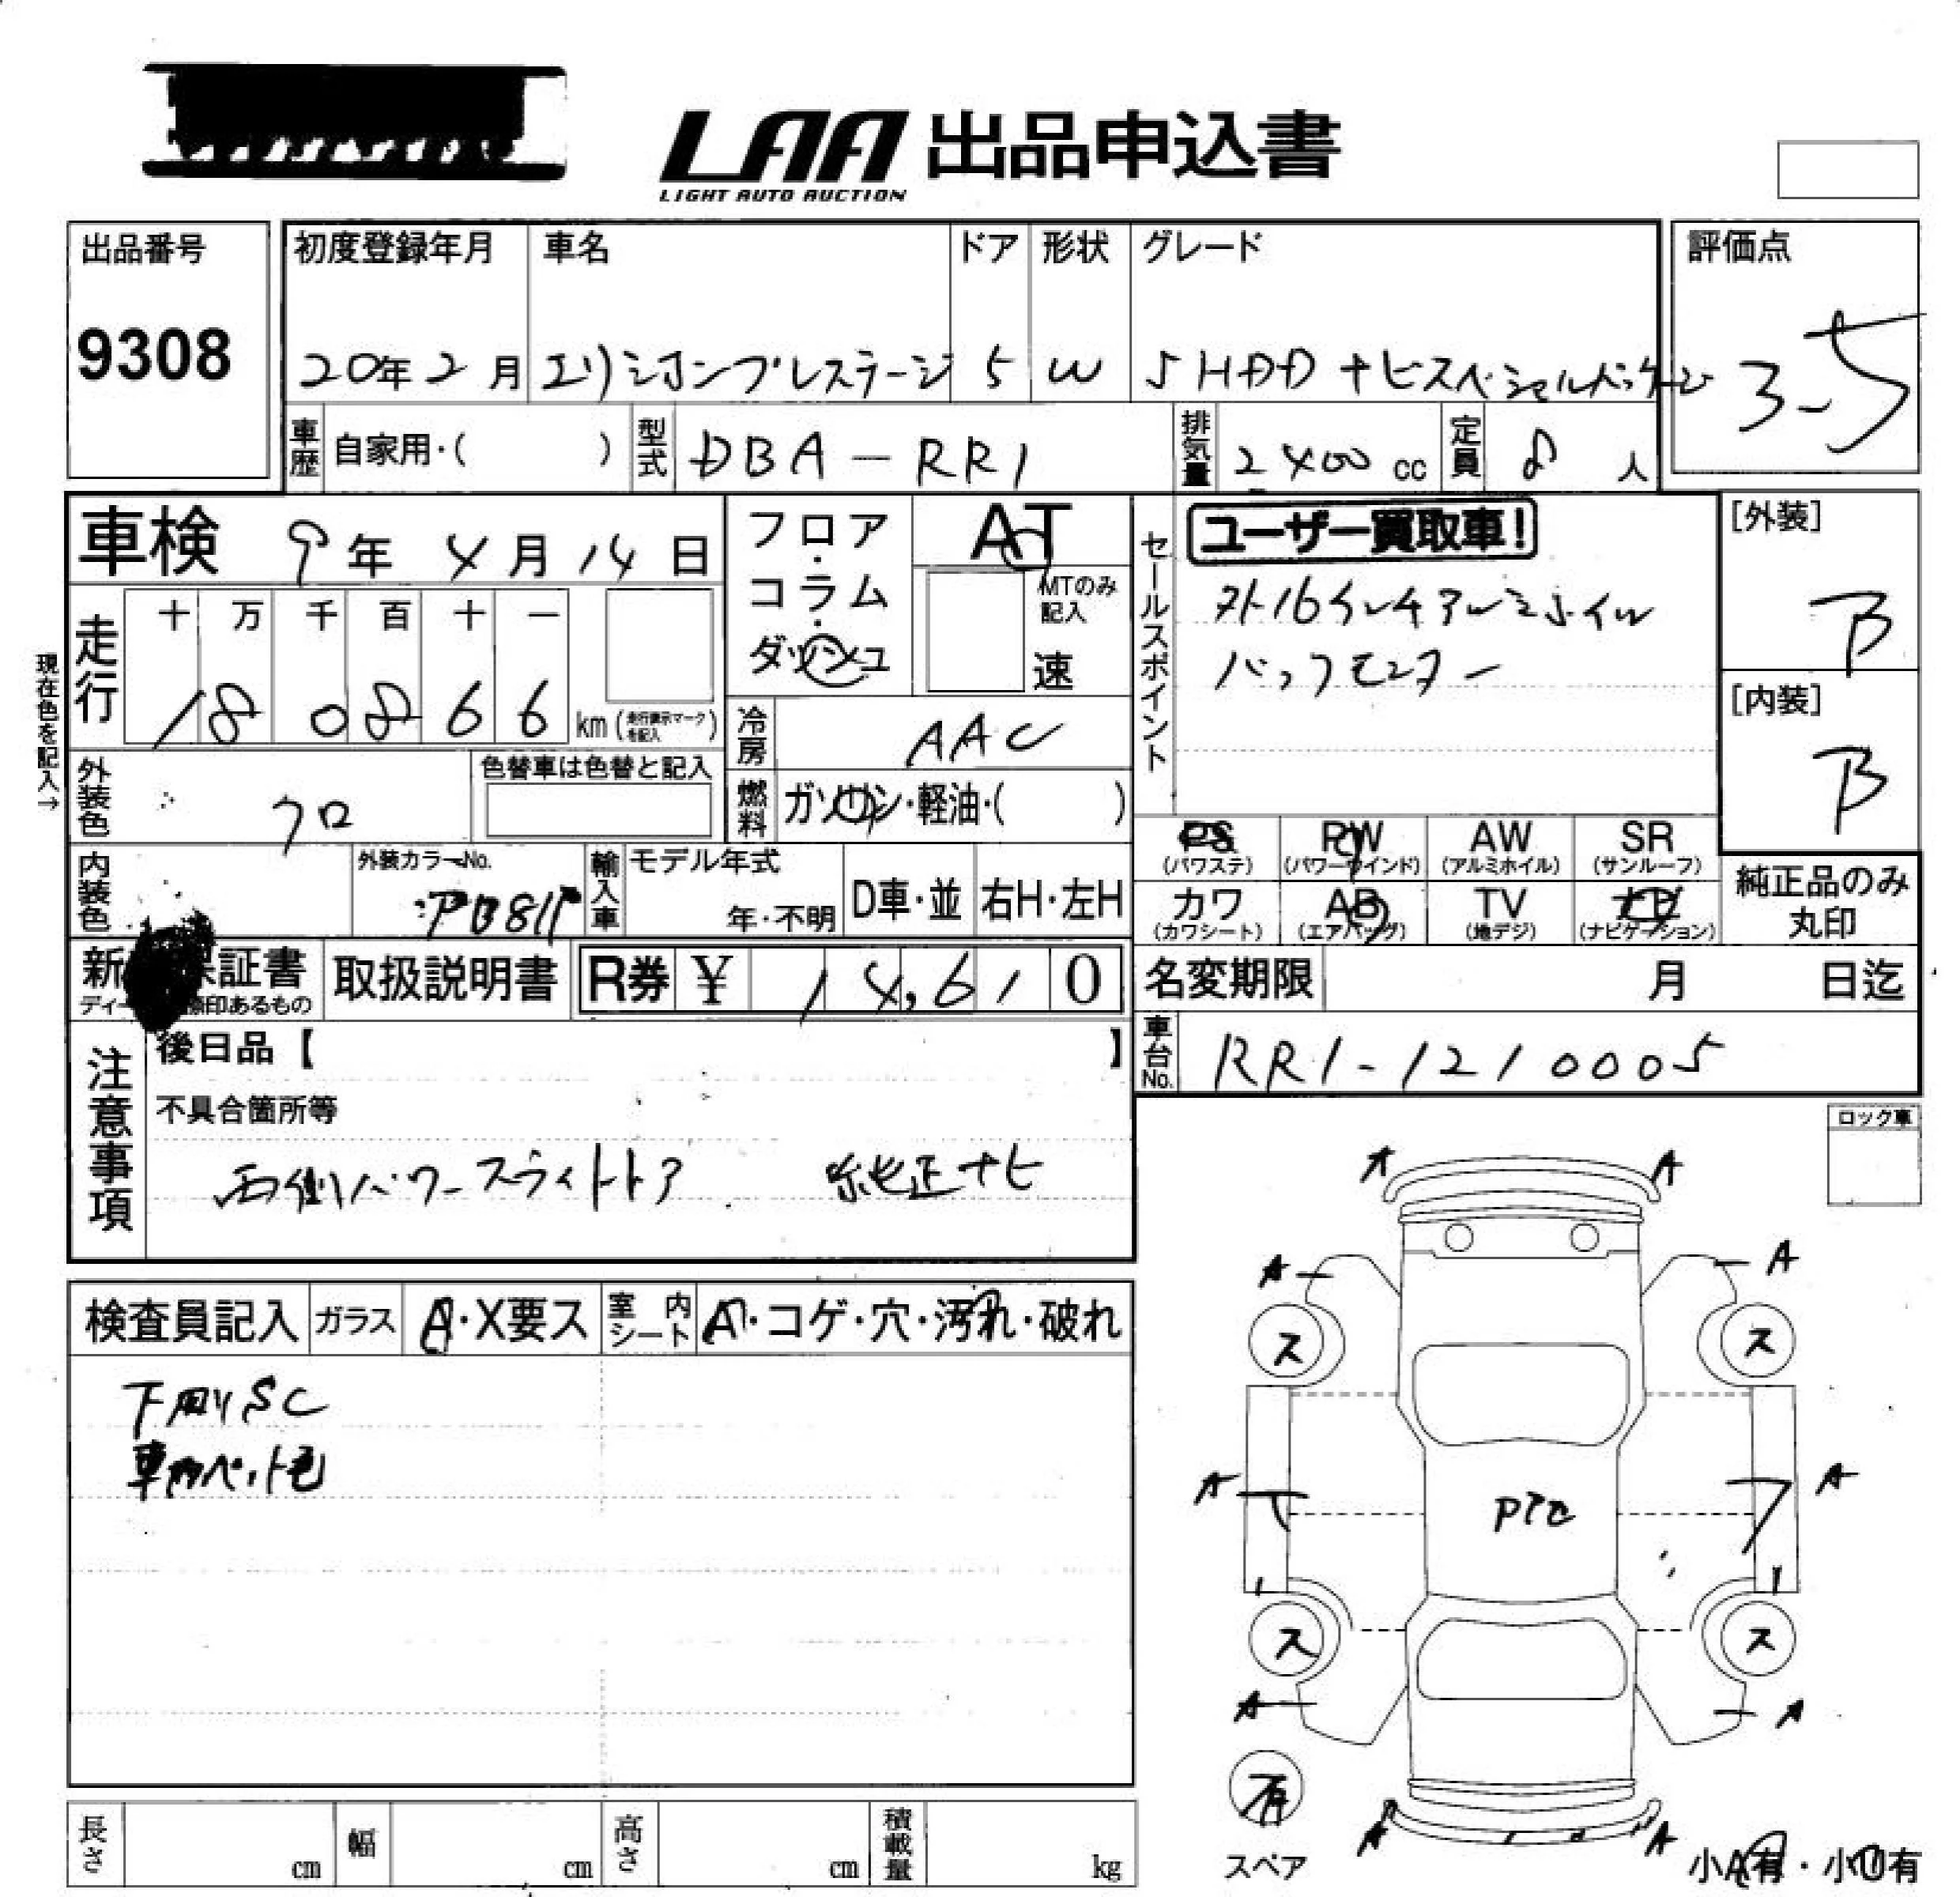 LAA 出品申込書
LIGHT AUTO AUCTION
出品番号
9308
初度登録年月 車名 ドア 形状 グレード
20年2月 エリシオンプレステージ 5 W S HDD ナビスペシャルパッケージ
評価点
3-5
車歴 自家用・( ) 型式 DBA-RR1 排気量 2400 cc 定員 8 人
車検 9年 4月 14日
フロア・コラム・ダッシュ
AT
MTのみ記入
速
セールスポイント
ユーザー買取車!
外16インチアルミホイル
バックモニター
[外装]
B
[内装]
B
現在色を記入→
走行 十 万 千 百 十 一
180866 km (走行表示マークを記入)
冷房 AAC
外装色 クロ
色替車は色替と記入
燃料 ガソリン・軽油・( )
内装色
外装カラーNo.
輸入車 モデル年式
年・不明 D車・並 右H・左H
PS (パワステ)
PW (パワーウインド)
AW (アルミホイル)
SR (サンルーフ)
カワ (カワシート)
AB (エアバッグ)
TV (地デジ)
(ナビゲーション)
純正品のみ丸印
取扱説明書 R券 ¥ 14,610
名変期限 月 日迄
車台No. RR1-1210005
注意事項
後日品【 】
不具合箇所等
両側パワースライドドア 純正ナビ
ロック車
検査員記入 ガラス A・X要ス 室内シート A・コゲ・穴・汚れ・破れ
下廻りSC
A A
A A
ス ス
A A
ス ス
A A
有
スペア
A A
小A有・小U有
長さ cm 幅 cm 高さ cm 積載量 kg